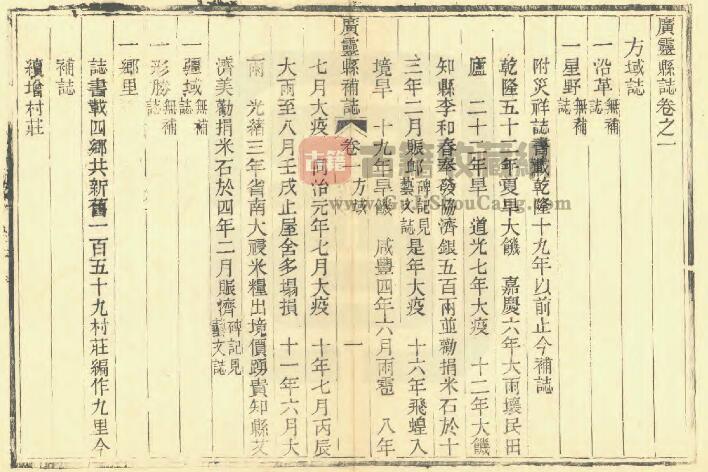 廣靈縣誌卷之一
方域誌
一沿革無補誌
一星野無補誌
附災祥誌書載乾隆十九年以前止今補誌
乾隆五十 年夏旱大饑 嘉慶六年大雨壞民田
廬 二十 年旱 道光七年大疫 十二年大饑
知縣李和春奉發協濟銀五百兩並勸捐米石於十
三年二月賑䘏碑記見藝文誌 是年大疫 十六年飛蝗入
境旱 十九年旱饑 咸豐四年六月雨雹 八年
廣靈縣補誌 卷一 方域 一
七月大疫 同治元年七月大疫 十年七月丙辰
大雨至八月壬戌止屋舍多塌損 十一年六月大
雨 光緒三年省南大祲米糧出境價踴貴知縣
濟美勸捐米石於四年二月賑濟碑記見藝文誌
一疆域無補誌
一形勝無補誌
一鄉里
誌書載四鄉共新舊一百五十九村莊編作九里今
補誌
續增村莊
古籍收藏網
www.GuJiShouCang.com